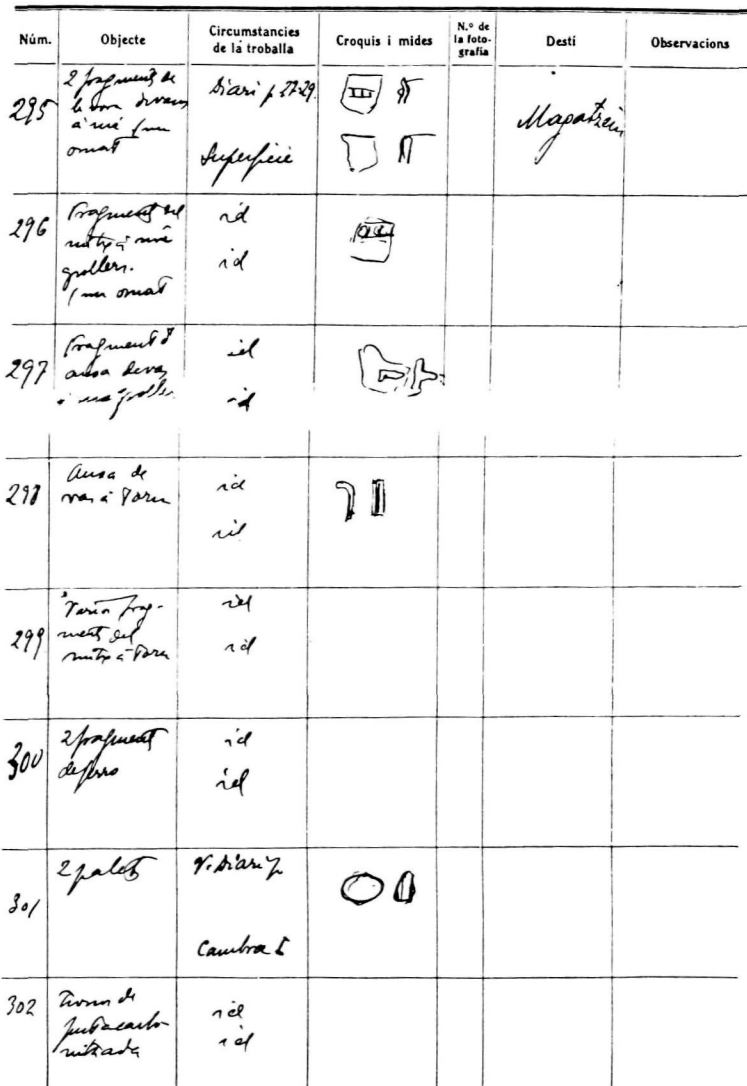 Núm. Objecte Circumstancies de la troballa Croquis i mides N.º de la foto-grafia Destí Observacions
295 2 fragments de
à mà
ornat
Diari p. 27-29.
Superficie
Magatzem
296 Fragment del
mitx à mà
grollers.
ornat
id
id
297 Fragment d
ansa de vas
à mà groller
id
id
298 Ansa de
vas à torn
id
id
299 Varis frag-
ments del
mitx à torn
id
id
300 2 fragments
de ferro
id
id
301 2 palets
V. Diari p
Cambra I
302 Trossos de
fusta carbo-
nitzada
id
id